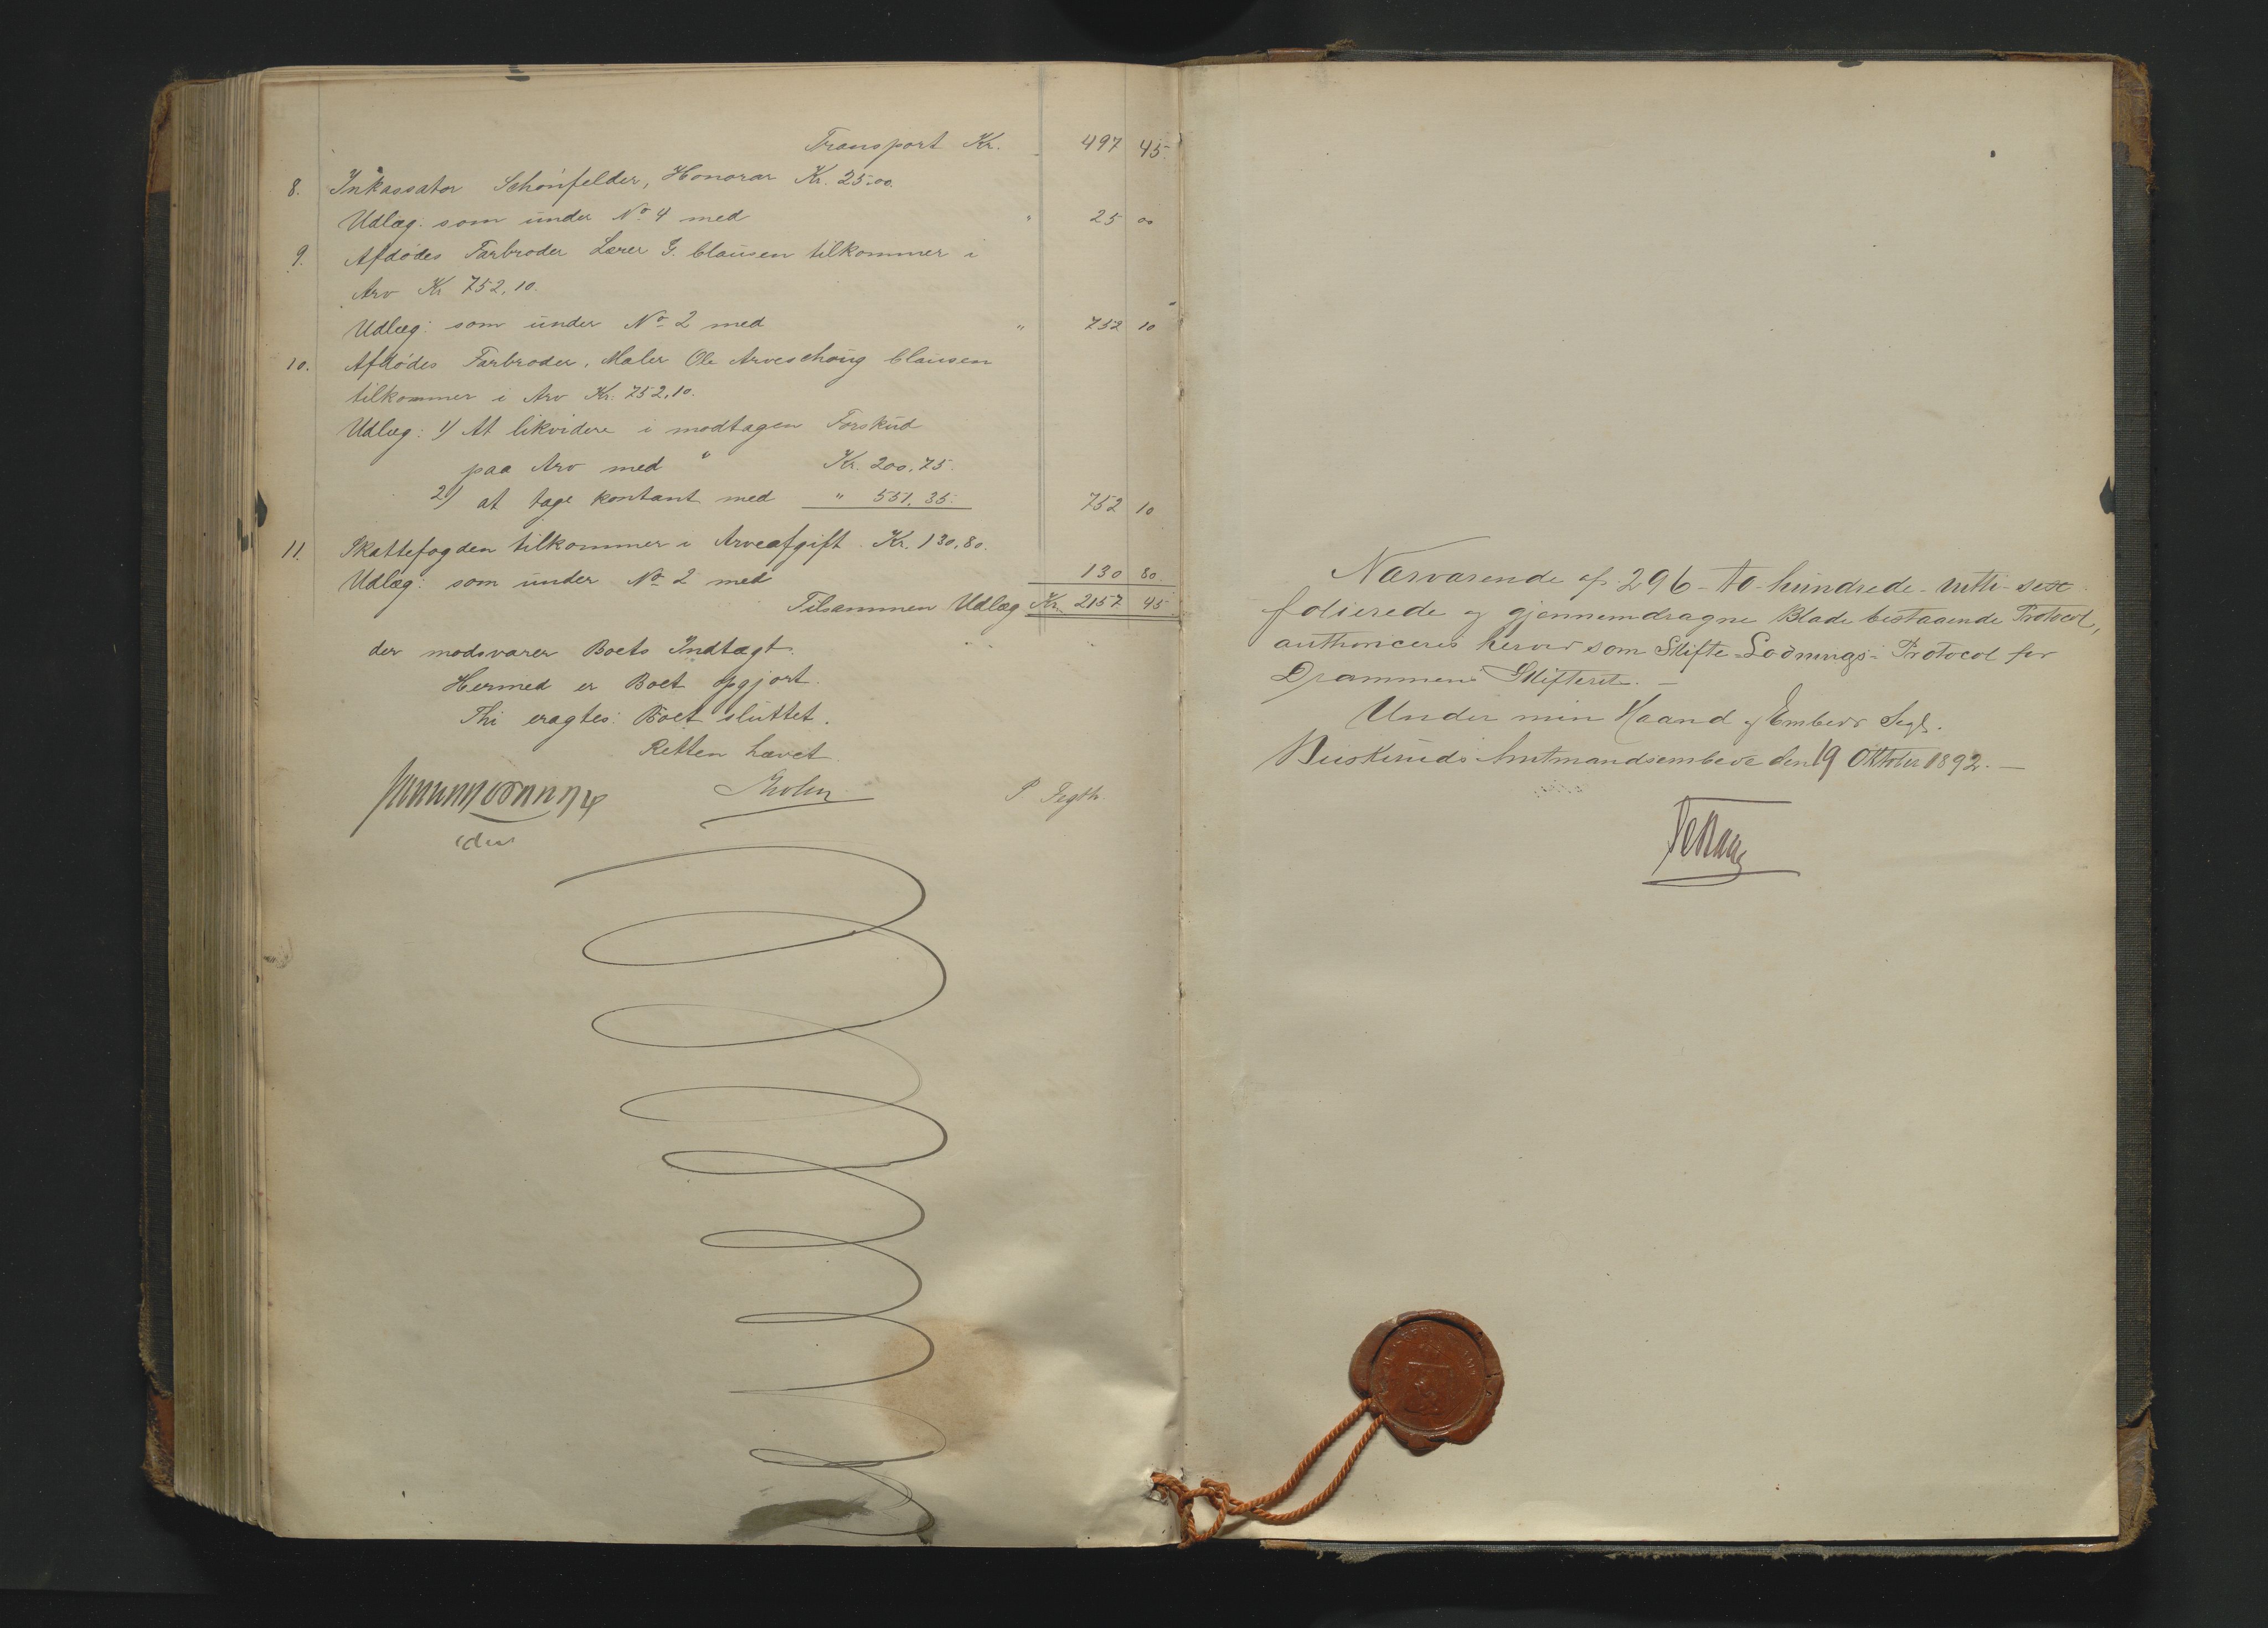 Transport Kr. 497 45.
8. Inkassator Schönfelder, Honorar Kr. 25.00.
Udlæg: som under No 4 med " 25 00
9. Afdødes Farbroder Lærer G. Clausen tilkommer i
Arv Kr 752,10.
Udlæg: som under No 2 med " 752 10
10. Afdødes Farbroder, Maler Ole Arveschoug Clausen
tilkommer i Arv Kr. 752,10.
Udlæg: 1) At likvidere i modtagen Forskud
paa Arv med Kr. 200.75.
2) at tage kontant med " 551.35. 752 10
11. Skattefogden tilkommer i Arveafgift Kr. 130,80.
Udlæg: som under No 2 med 130 80.
Tilsammen Udlæg Kr. 2157 45
der modsvarer Boets Indtægt.
Hermed er Boet opgjort.
Thi eragtes: Boet sluttet.
Retten hævet.
Holm P
Nærværende af 296 - to-hundrede-nitti-sex
folierede og gjennemdragne Blade bestaaende Protocol,
authoriceres herved som Skifte-Lodnings-Protocol for
Drammens Skifteret. —
Under min Haand og Embeds Segl.
Buskeruds Amtmandsembede den 19 Oktober 1892. —